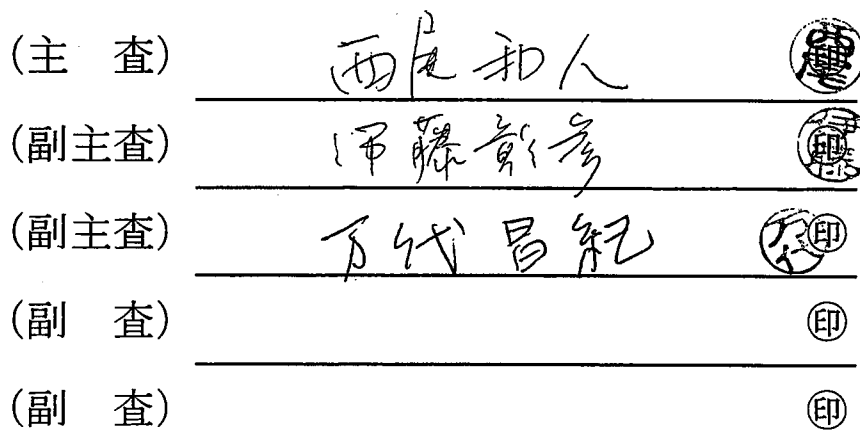 (主 査) 西尾和人 ㊞
(副主査) 伊藤彰彦 ㊞
(副主査) 万代昌紀 ㊞
(副 査) ㊞
(副 査) ㊞